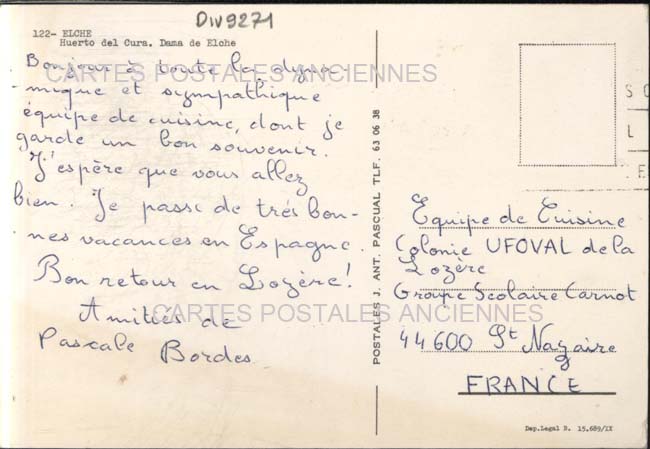 Div9271
122- ELCHE
Huerto del Cura. Dama de Elche
Bonjour à toute la dyna-
mique et sympathique
équipe de cuisine, dont je
garde un bon souvenir.
J'espère que vous allez
bien. Je passe de très bon-
nes vacances en Espagne.
Bon retour en Lozère!
Amitiés de
Pascale Bordes
CARTES POSTALES ANCIENNES
CARTES POSTALES ANCIENNES
POSTALES J. ANT. PASCUAL TLF. 63 06 38
Equipe de Cuisine
Colonie UFOVAL de la
Lozère
Groupe Scolaire Carnot
44600 St Nazaire
FRANCE
Dep. Legal B. 15.689/IX